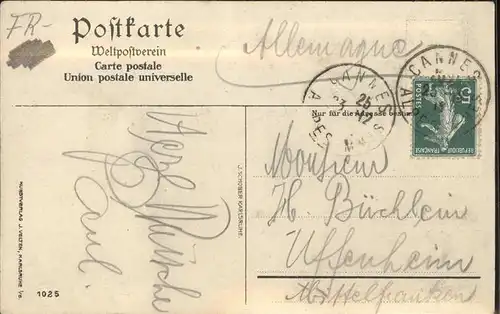 FR-
Postkarte
Weltpostverein
Carte postale
Union postale universelle
Allemagne
CANNES
25
ALPES
CANNES
25
5c
POSTES
REPUBLIQUE FRANÇAISE
Nur für die Adresse
Monsieur
H. Büchlein
Uffenheim
Mittelfranken
Herzl. Grüsse
Paul.
J. SCHOBER KARLSRUHE
KUNSTVERLAG J. VELTEN, KARLSRUHE i/B.
1025